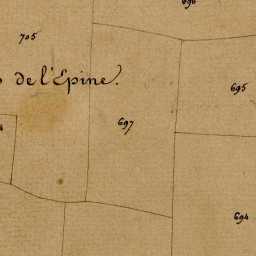 696
705
de l'Epine.
695
697
694